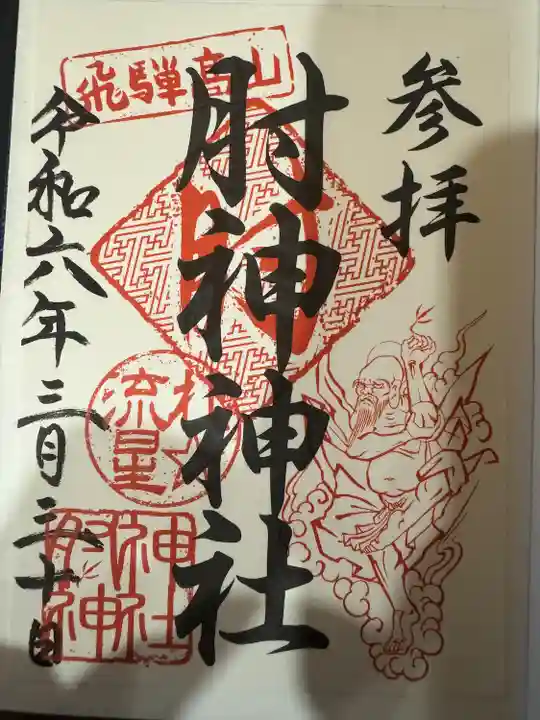 参拝
肘神神社
飛騨高山
流星
肘神
神社
令和六年三月三十日